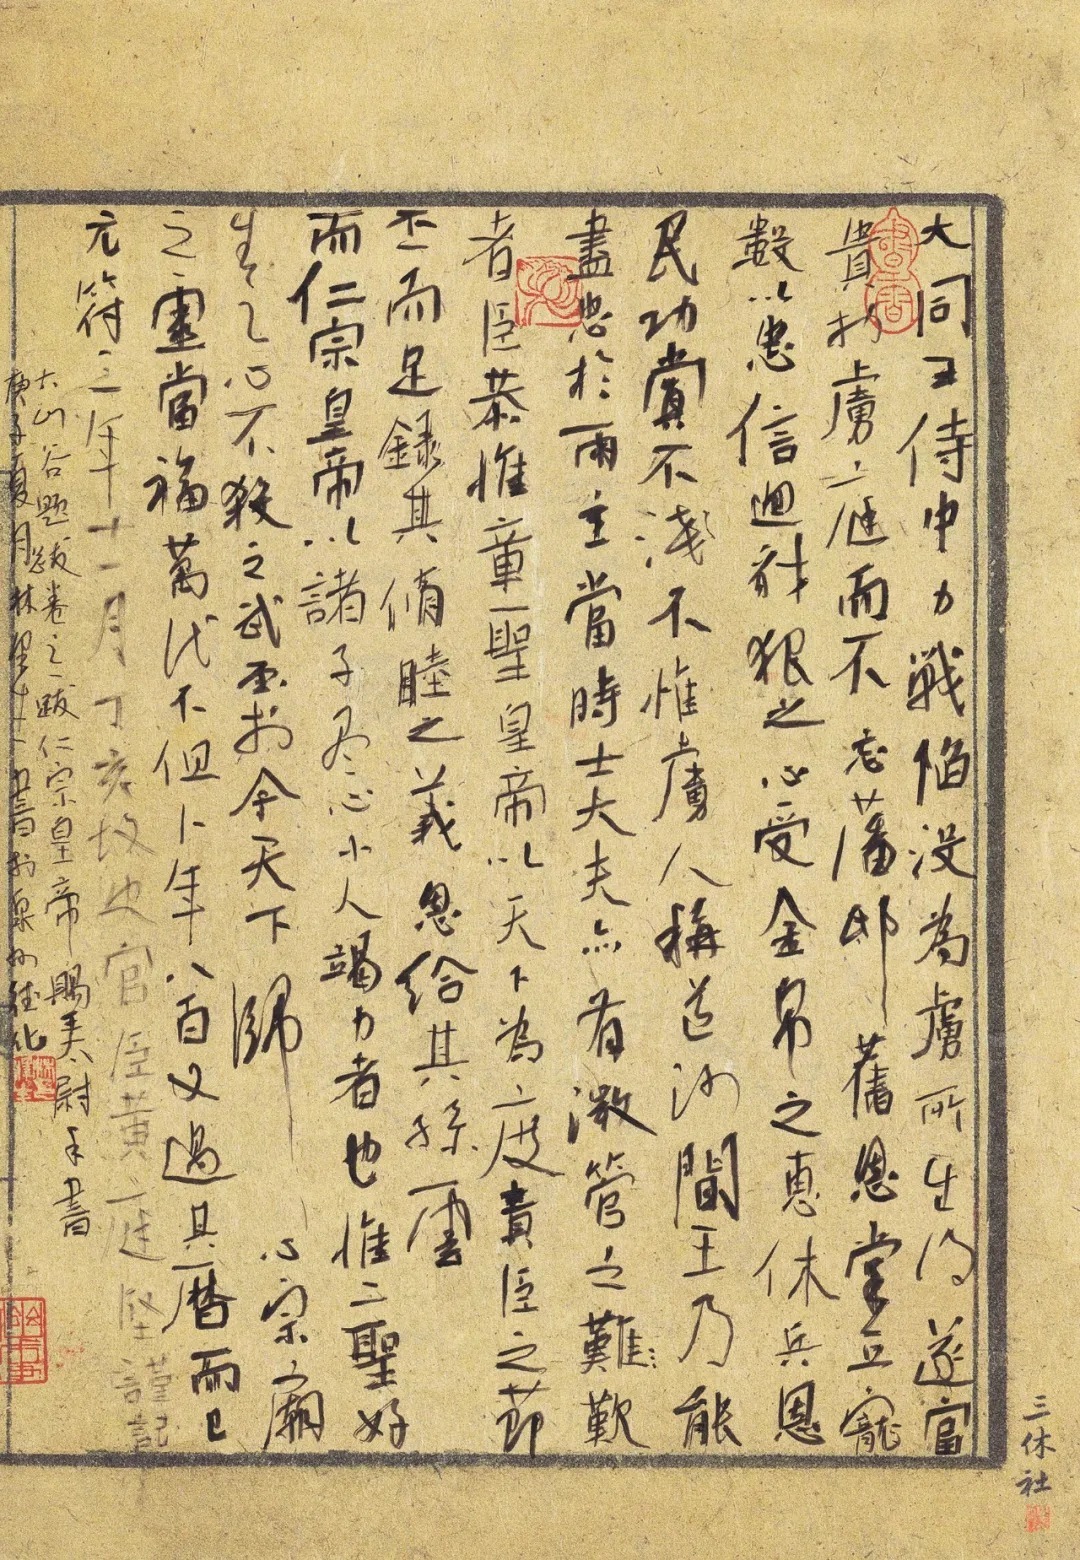 大同王侍中力戰陷没為虜所生得遂富
貴於虜庭而不忘藩邸舊恩掌立寵
數以忠信迴豺狠之心受金帛之惠休兵恩
民功賞不淺不惟虜人稱道河間王乃能
盡忠於兩主當時士大夫亦有激管之難歎
者臣恭惟章聖皇帝以天下為度責臣之節
而足錄其脩睦之義恩給其孫雲
而仁宗皇帝以諸子尽心小人竭力者也惟二聖好
生之心不殺之武至於今天下歸心宗廟
之靈當福萬代不但卜年八百又過其曆而已
元符三年十一月丁亥故史官臣黃庭堅謹記
六山谷題跋卷之一跋仁宗皇帝賜美尉手書
庚子夏月林書於泉州德化
書香
三休社